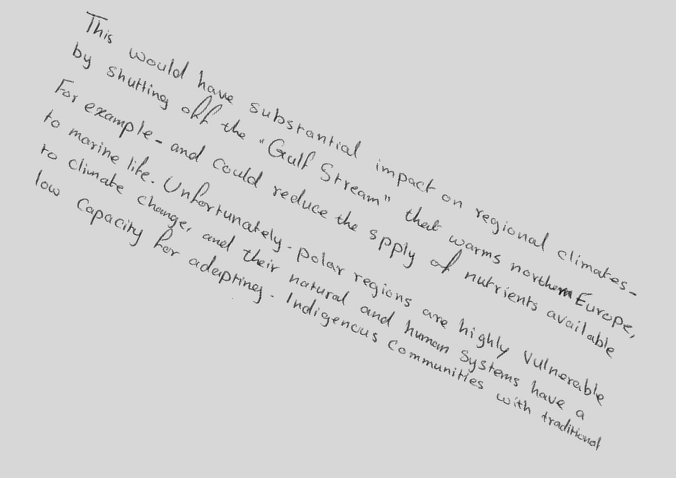 This would have substantial impact on regional climates-
by shutting off the "Gulf Stream" that warms northern Europe,
For example- and could reduce the spply of nutrients available
to marine life. Unfortunately- polar regions are highly vulnerable
to climate change, and their natural and human systems have a
low capacity for adapting. Indigenous communities with traditional